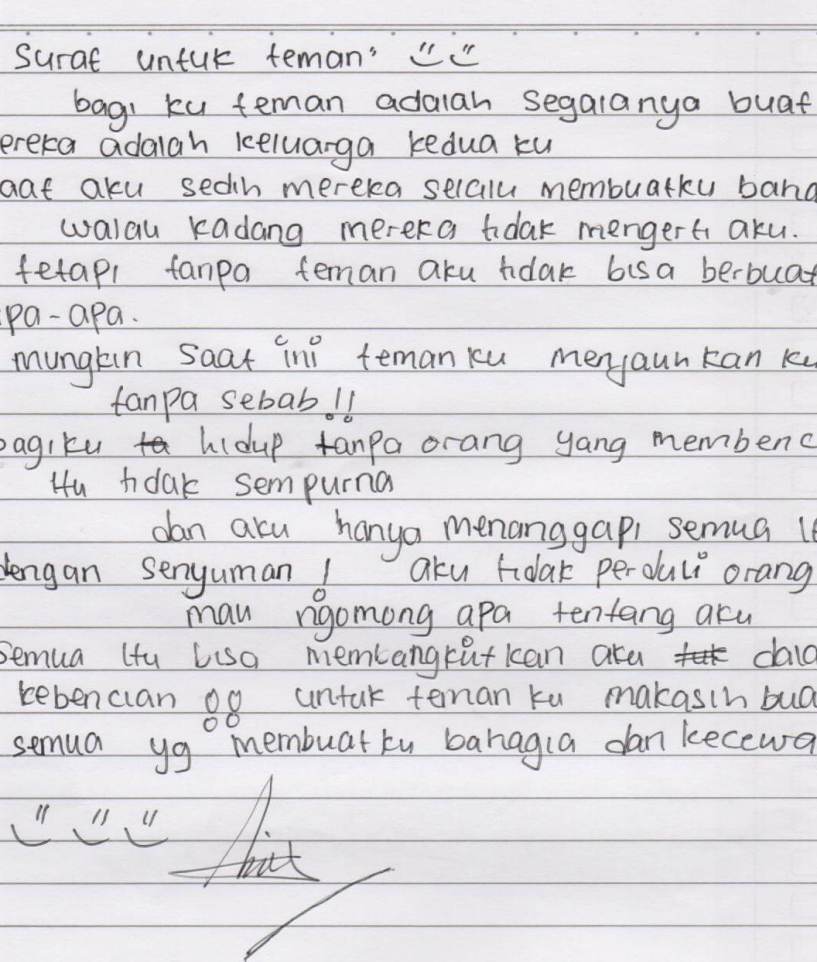 Surat untuk teman"
bagi ku teman adalah segalanya buat
ereka adalah keluarga kedua ku
aat aku sedih mereka selalu membuatku baha
walau kadang mereka tidak mengerti aku.
tetapi tanpa teman aku tidak bisa berbuat
pa-apa.
mungkin saat ini teman ku menjauhkan ku
tanpa sebab!!
bagiku ta hidup tanpa orang yang membenc
itu tidak sempurna
dan aku hanya menanggapi semua it
dengan senyuman! aku tidak perduli orang
mau ngomong apa tentang aku
semua itu bisa membangkitkan aku dala
kebencian !! untuk teman ku makasih bua
semua yg membuatku bahagia dan kecewa